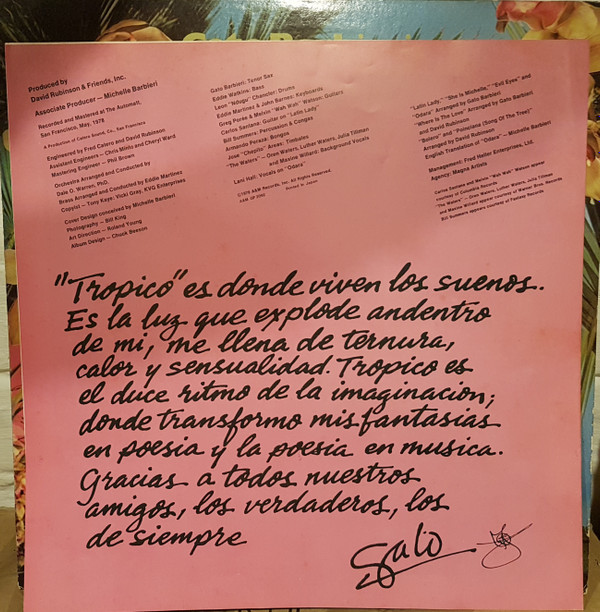 Produced by
David Rubinson & Friends, Inc.
Associate Producer — Michelle Barbieri
Recorded and Mastered at The Automatt,
San Francisco, May, 1978
A Production of Catero Sound, Co., San Francisco
Engineered by Fred Catero and David Rubinson
Assistant Engineers — Chris Minto and Cheryl Ward
Mastering Engineer — Phil Brown
Orchestra Arranged and Conducted by
Dale O. Warren, PhD.
Brass Arranged and Conducted by Eddie Martinez
Copyist — Tony Kaye; Vicki Gray, KVG Enterprises
Cover Design conceived by Michelle Barbieri
Photography — Bill King
Art Direction — Roland Young
Album Design — Chuck Beeson
Gato Barbieri: Tenor Sax
Eddie Watkins: Bass
Leon "Ndugu" Chancler: Drums
Eddie Martinez & John Barnes: Keyboards
Greg Poree & Melvin "Wah Wah" Watson: Guitars
Carlos Santana: Guitar on "Latin Lady"
Bill Summers: Percussion & Congas
Armando Peraza: Bongos
Jose "Chepito" Areas: Timbales
"The Waters" — Oren Waters, Luther Waters, Julia Tillman
and Maxine Willard: Background Vocals
Lani Hall: Vocals on "Odara"
©1978 A&M Records, Inc. All Rights Reserved.
"Latin Lady," "She Is Michelle," "Evil Eyes" and
"Odara" Arranged by Gato Barbieri
"Where Is The Love" Arranged by Gato Barbieri
and David Rubinson
"Bolero" and "Poinciana (Song Of The Tree)"
Arranged by David Rubinson
English Translation of "Odara" — Michelle Barbieri
Management: Fred Heller Enterprises, Ltd.
Agency: Magna Artists
Carlos Santana and Melvin "Wah Wah" Watson appear
courtesy of Columbia Records
"The Waters" — Oren Waters, Luther Waters, Julia Tillman
and Maxine Willard appear courtesy of Warner Bros. Records
Bill Summers appears courtesy of Fantasy Records
"Tropico" es donde viven los suenos.
Es la luz que explode andentro
de mi, me llena de ternura,
calor y sensualidad. Tropico es
el duce ritmo de la imaginacion;
donde transformo mis fantasias
en poesia y la poesia en musica.
Gracias a todos nuestros
amigos, los verdaderos, los
de siempre
Gato